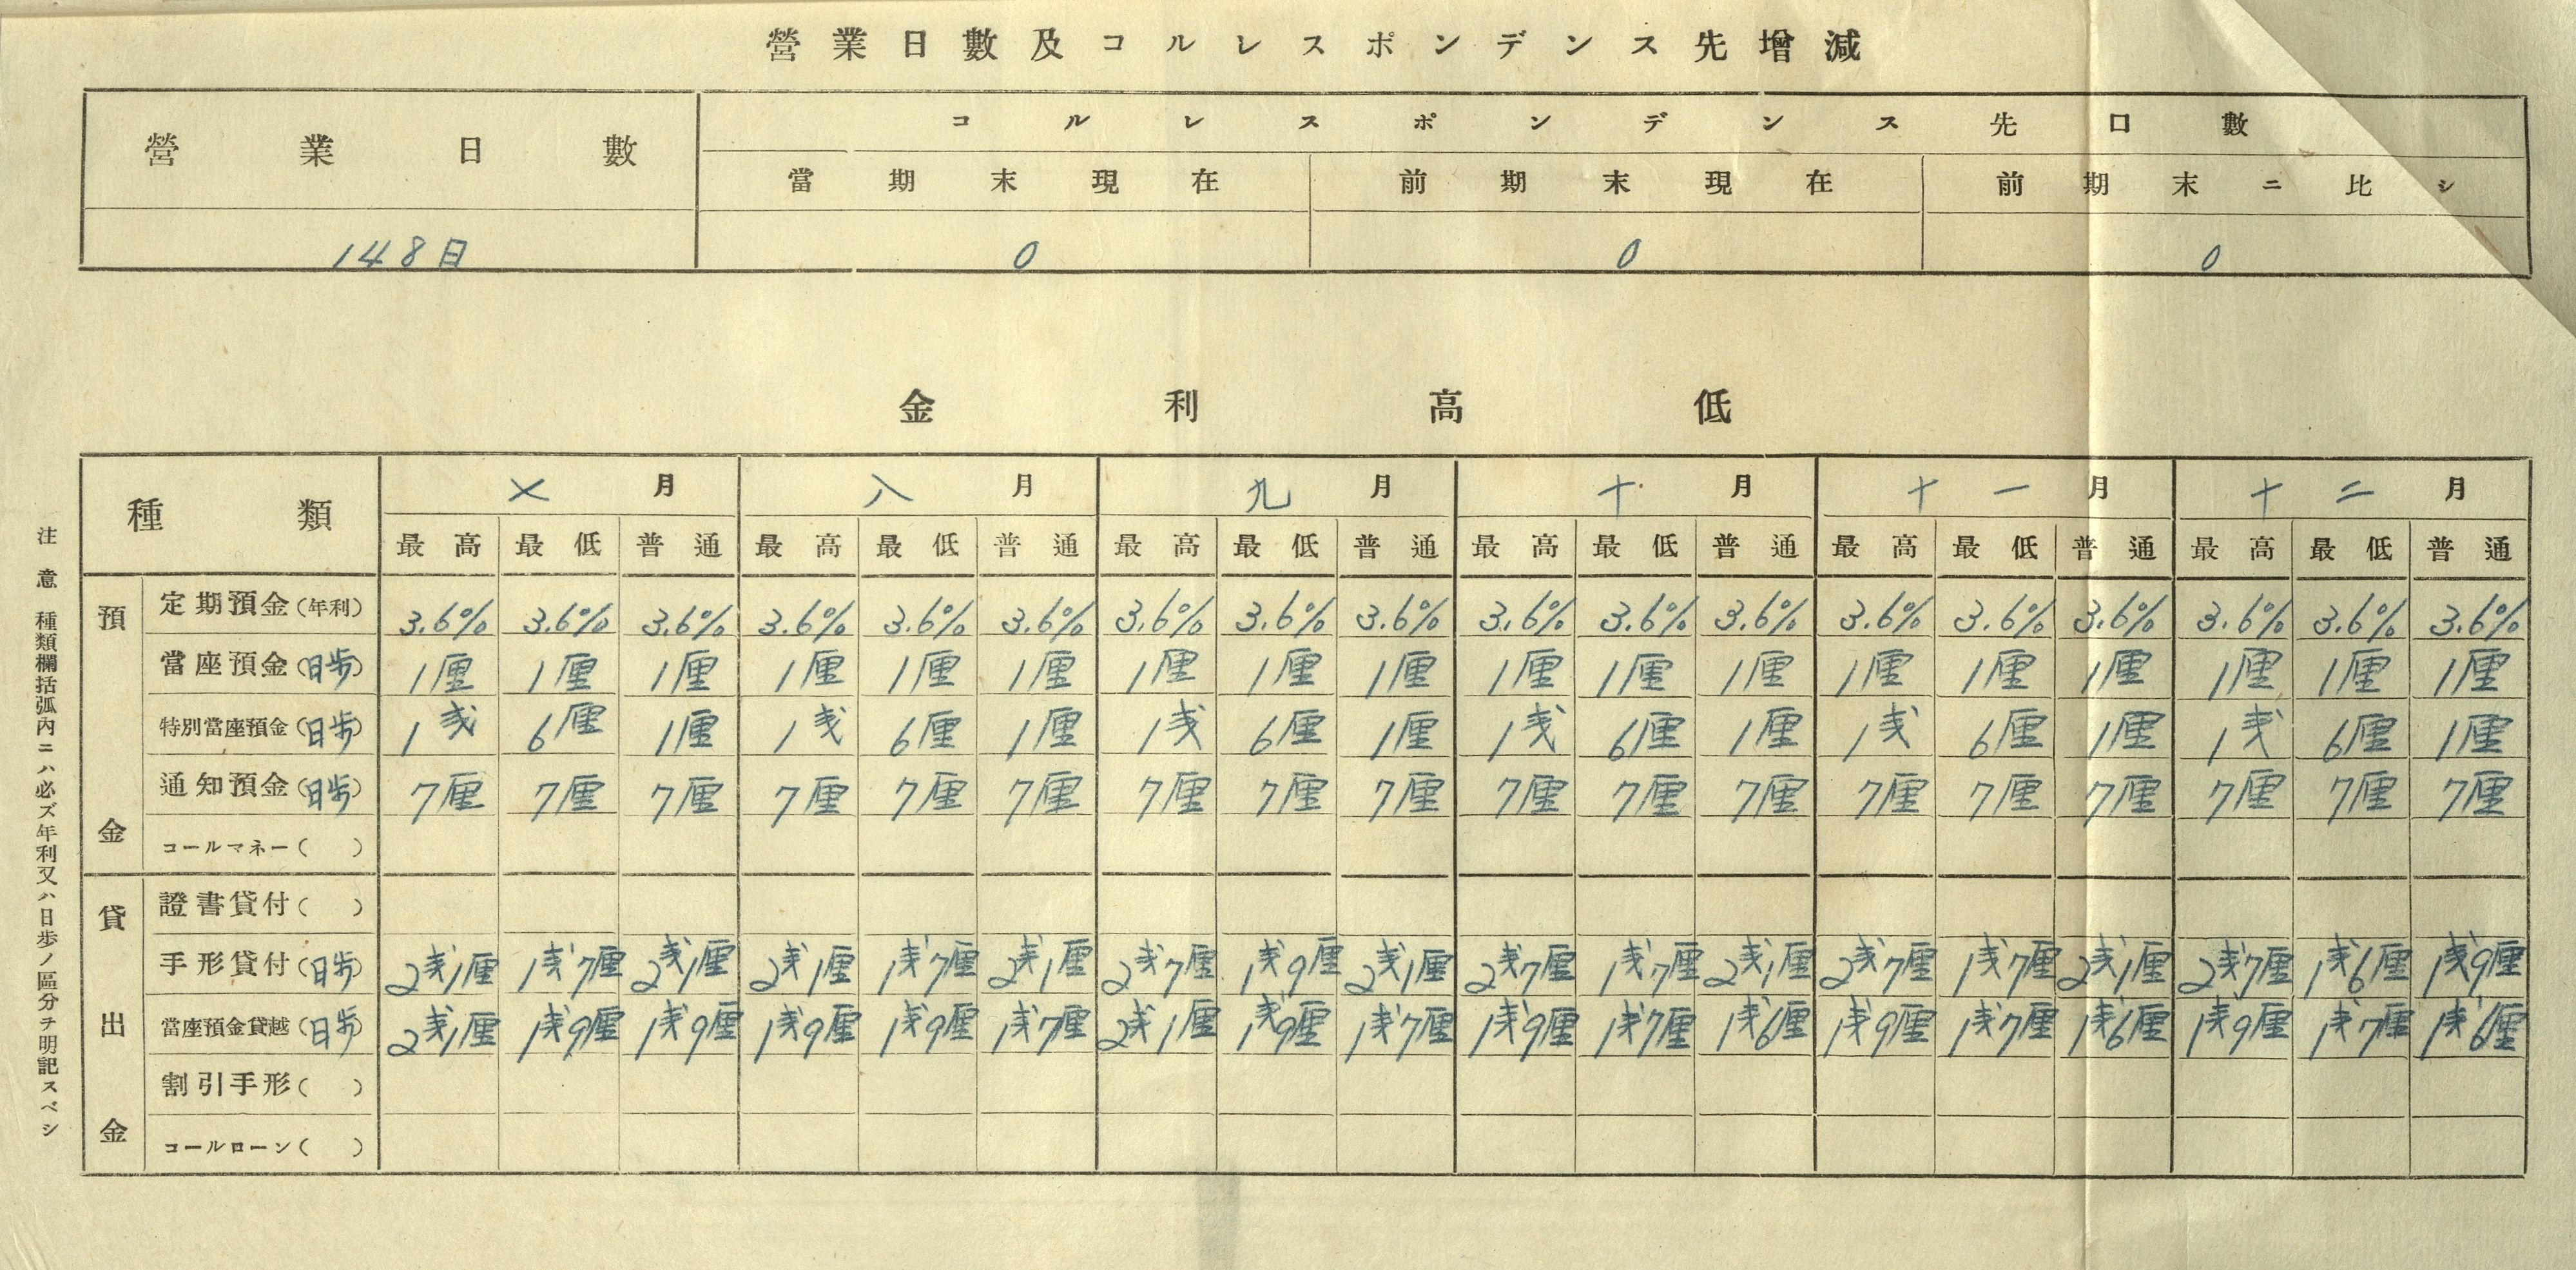 營業日數及コルレスポンデンス先增減
營業日數 コルレスポンデンス先口數
當期末現在 前期末現在 前期末ニ比シ
148日 0 0 0
金利高低
種類 七月 八月 九月 十月 十一月 十二月
最高 最低 普通 最高 最低 普通 最高 最低 普通 最高 最低 普通 最高 最低 普通 最高 最低 普通
預金
定期預金(年利) 3.6% 3.6% 3.6% 3.6% 3.6% 3.6% 3.6% 3.6% 3.6% 3.6% 3.6% 3.6% 3.6% 3.6% 3.6% 3.6% 3.6% 3.6%
當座預金(日歩) 1厘 1厘 1厘 1厘 1厘 1厘 1厘 1厘 1厘 1厘 1厘 1厘 1厘 1厘 1厘 1厘 1厘 1厘
特別當座預金(日歩) 1戔 6厘 1厘 1戔 6厘 1厘 1戔 6厘 1厘 1戔 6厘 1厘 1戔 6厘 1厘 1戔 6厘 1厘
通知預金(日歩) 7厘 7厘 7厘 7厘 7厘 7厘 7厘 7厘 7厘 7厘 7厘 7厘 7厘 7厘 7厘 7厘 7厘 7厘
コールマネー( )
貸出金
證書貸付( )
手形貸付(日歩) 2戔1厘 1戔7厘 2戔1厘 2戔1厘 1戔7厘 2戔1厘 2戔7厘 1戔9厘 2戔1厘 2戔7厘 1戔7厘 2戔1厘 2戔7厘 1戔7厘 2戔1厘 2戔7厘 1戔6厘 1戔9厘
當座預金貸越(日歩) 2戔1厘 1戔9厘 1戔9厘 1戔9厘 1戔9厘 1戔7厘 2戔1厘 1戔9厘 1戔7厘 1戔9厘 1戔7厘 1戔6厘 1戔9厘 1戔7厘 1戔6厘 1戔9厘 1戔7厘 1戔6厘
割引手形( )
コールローン( )
注意 種類欄括弧內ニハ必ズ年利又ハ日歩ノ區分ヲ明記スベシ